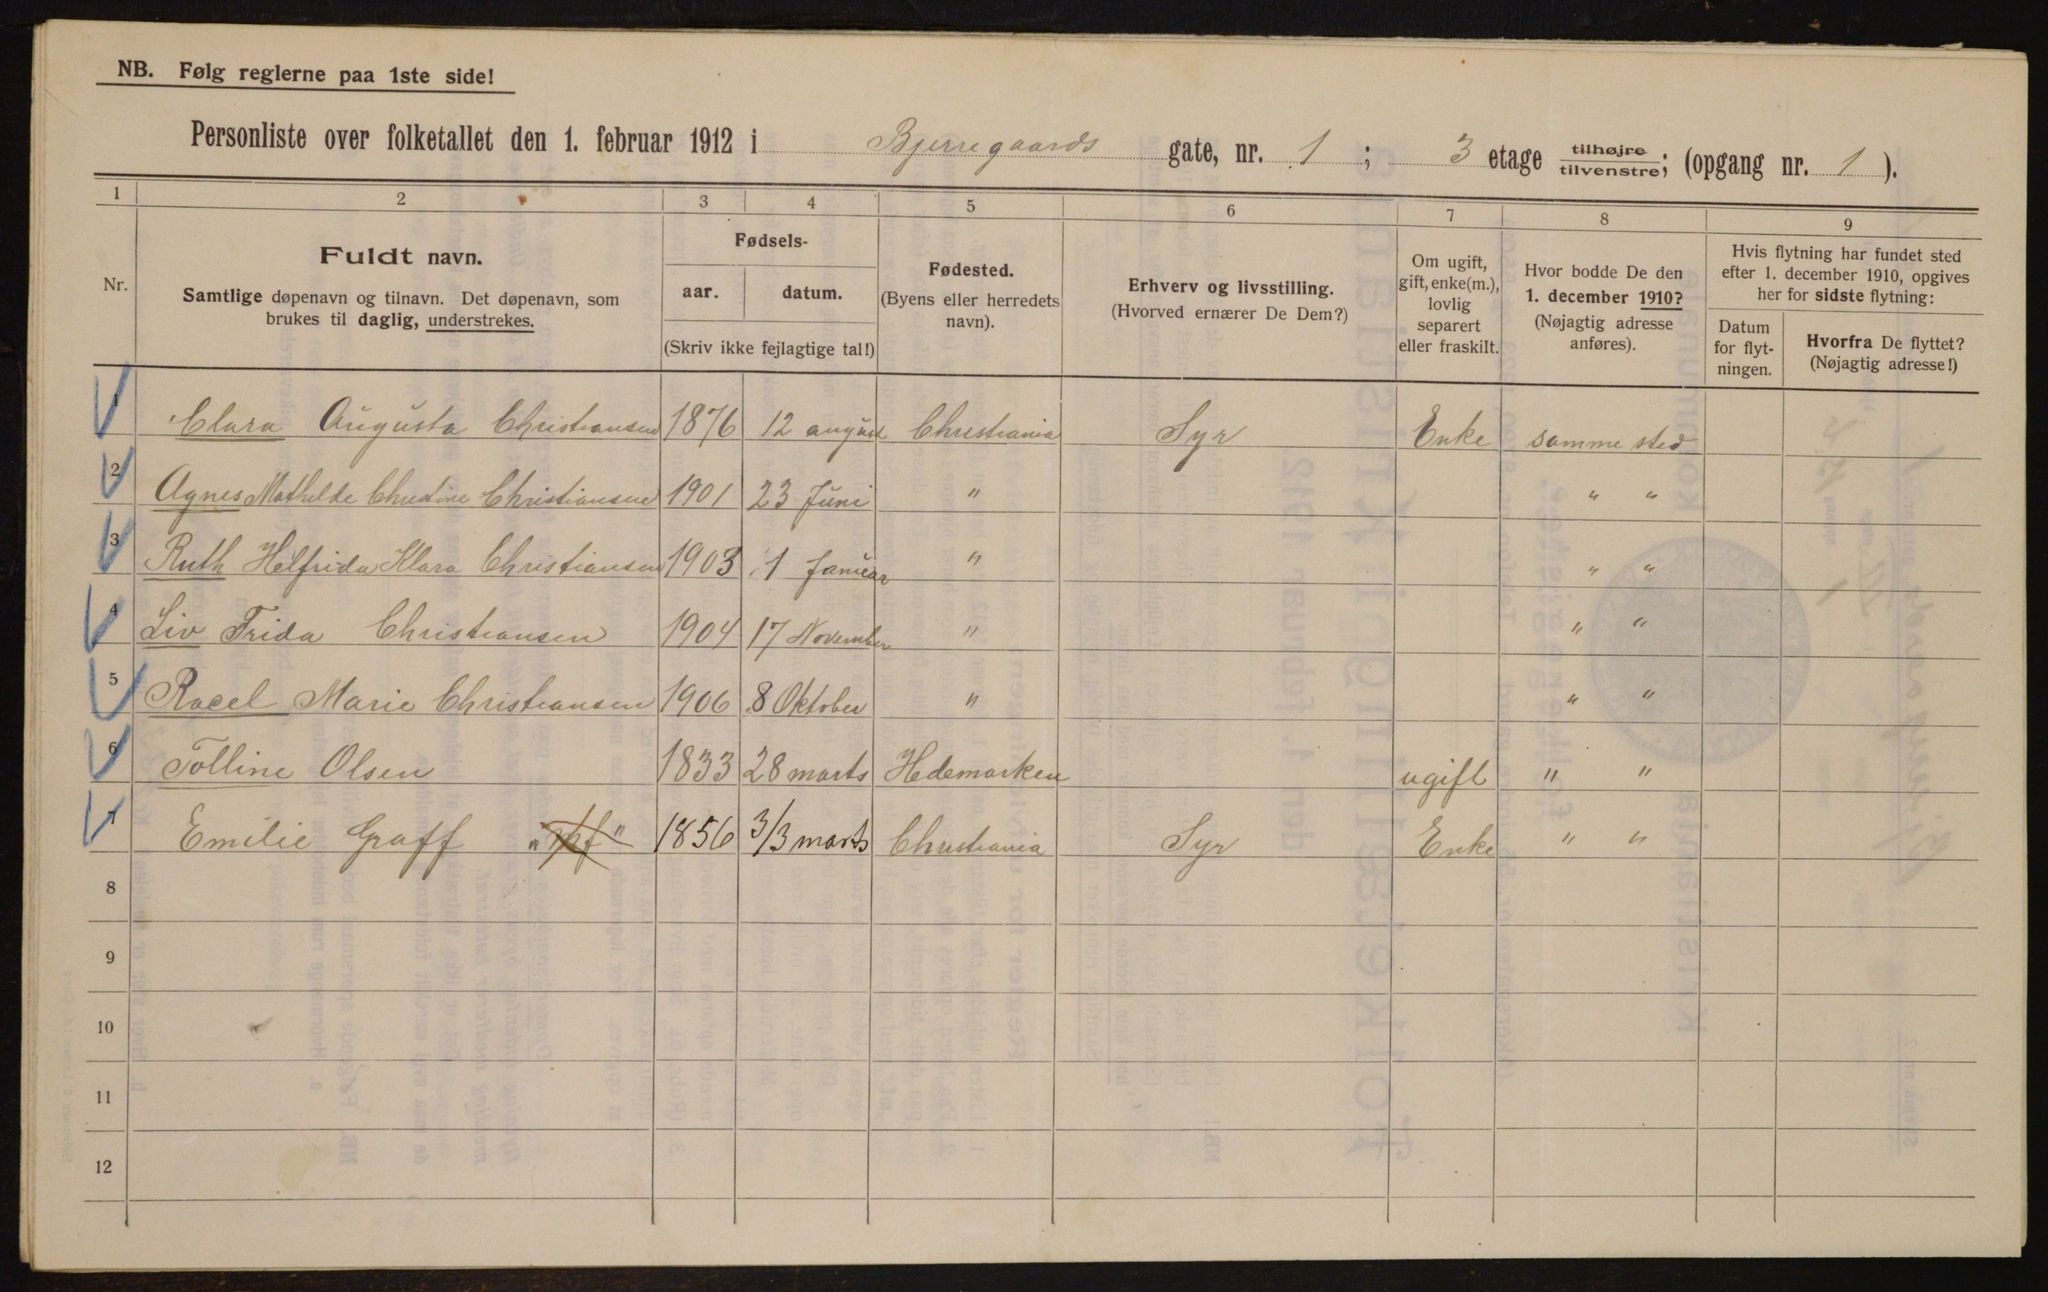 NB. Følg reglerne paa 1ste side!
Personliste over folketallet den 1. februar 1912 i Bjerregaards gate, nr. 1 ; 3 etage tilhøjre/tilvenstre; (opgang nr. 1 ).
1 2 3 4 5 6 7 8 9
Nr.
Fuldt navn.
Samtlige døpenavn og tilnavn. Det døpenavn, som
brukes til daglig, understrekes.
Fødsels-
aar. datum.
(Skriv ikke fejlagtige tal!)
Fødested.
(Byens eller herredets
navn).
Erhverv og livsstilling.
(Hvorved ernærer De Dem?)
Om ugift,
gift, enke(m.),
lovlig
separert
eller fraskilt.
Hvor bodde De den
1. december 1910?
(Nøjagtig adresse
anføres).
Hvis flytning har fundet sted
efter 1. december 1910, opgives
her for sidste flytning:
Datum
for flyt-
ningen.
Hvorfra De flyttet?
(Nøjagtig adresse!)
1 Clara Augusta Christiansen 1876 12 august Christiania Syr Enke samme sted
2 Agnes Mathelde Christine Christiansen 1901 23 Juni " " "
3 Ruth Helfrida Klara Christiansen 1903 1 Januar " " "
4 Liv Frida Christiansen 1904 17 November " " "
5 Racel Marie Christiansen 1906 8 Oktober " " "
6 Tolline Olsen 1833 28 marts Hedemarken ugift " "
7 Emilie Graff 1856 3/3 marts Christiania Syr Enke " "
8
9
10
11
12